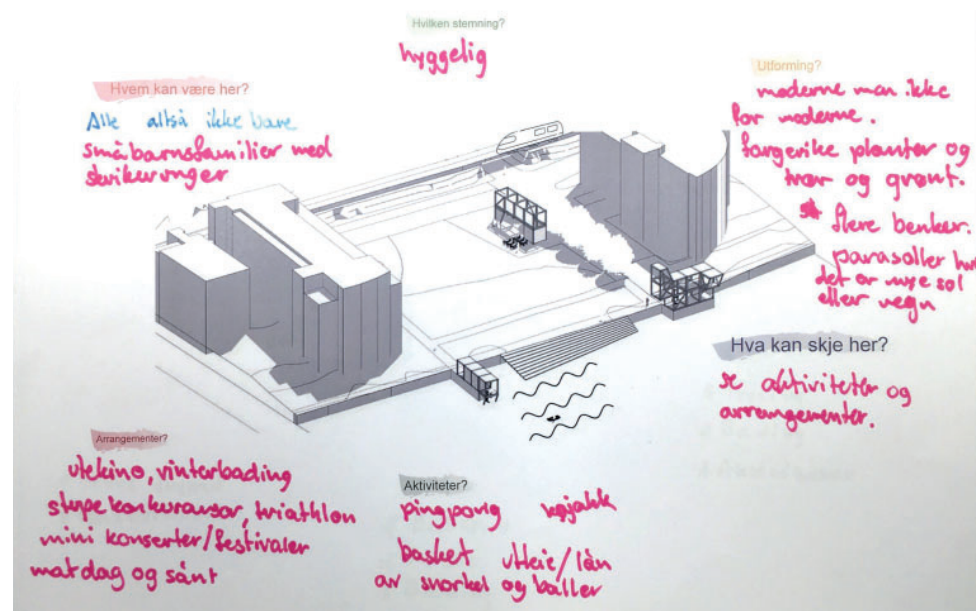 Hvilken stemning?
hyggelig
Hvem kan være her?
Alle altså ikke bare
småbarnsfamilier med
skrikerunger
Utforming?
moderne men ikke
for moderne.
fargerike planter og
trær og grønt.
flere benker.
parasoller hvi
det er mye sol
eller regn
Hva kan skje her?
se aktiviteter og
arrangementer.
Arrangementer?
utekino, vinterbading
stupekonkurranser, triathlon
mini konserter/festivaler
matdag og sånt
Aktiviteter?
pingpong kajakk
basket utleie/lån
av snorkel og baller